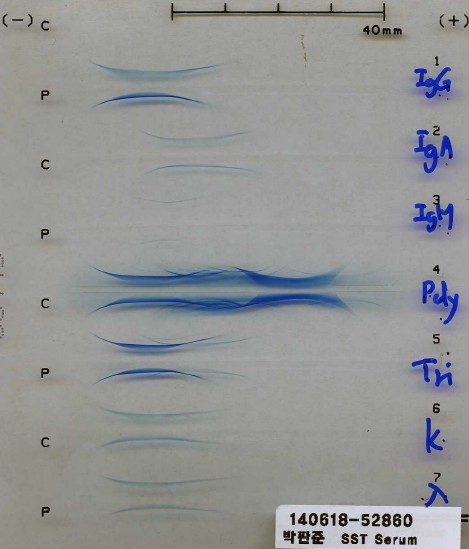 (-) C (+)
40mm
1
IgG
P
2
IgA
C
3
IgM
P
4
Poly
C
5
Tri
P
6
k
C
7
λ
P
140618-52860
박판준 SST Serum